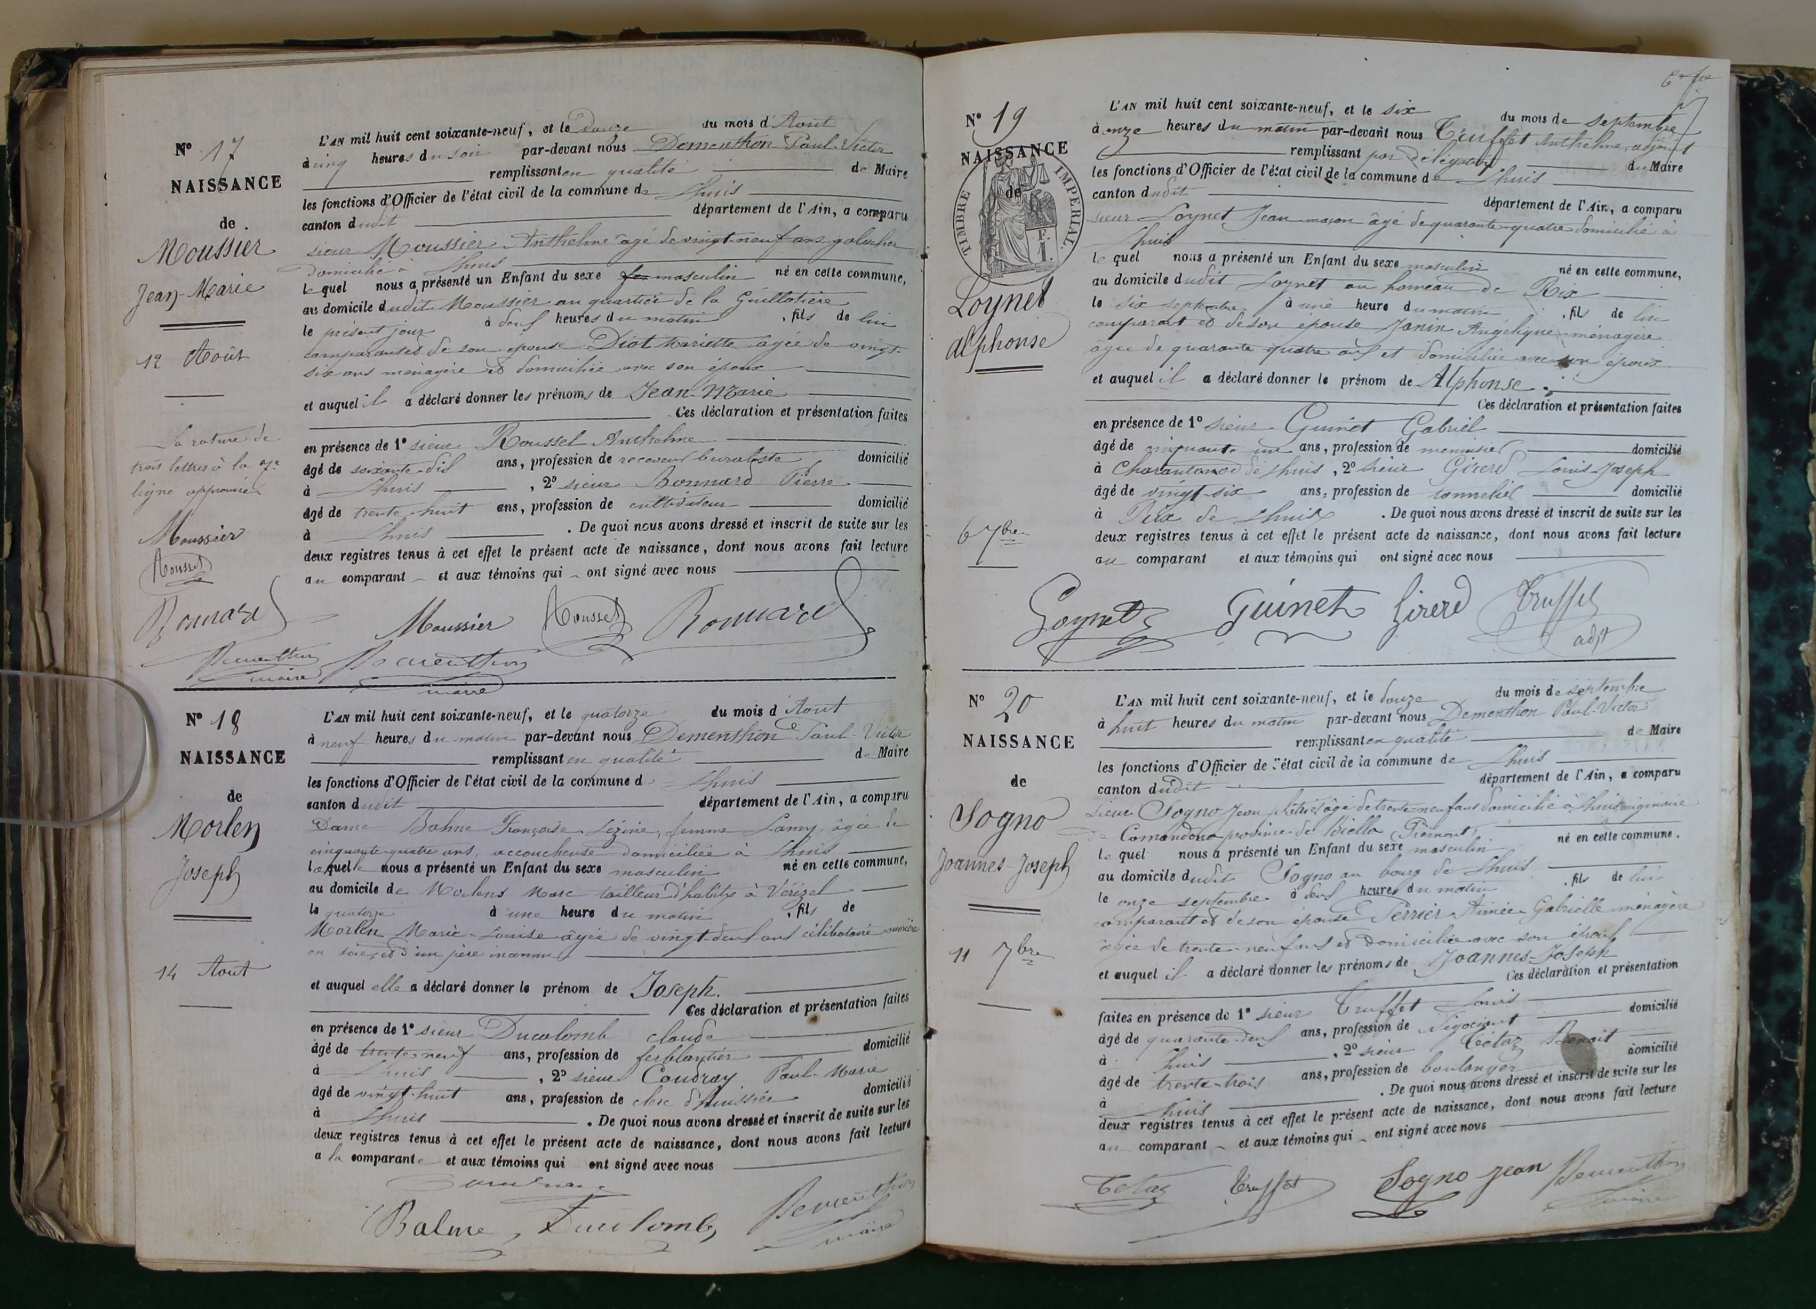 N° 17
NAISSANCE
de
Moussier
Jean-Marie
12 Août
La rature de
trois lettres à la
ligne approuvée
Moussier
Roussel
Bonnard
Dementhon
maire
L'AN mil huit cent soixante-neuf, et le douze du mois d'Aout
à cinq heures du soir par-devant nous Dementhon Paul-Victor
remplissant en qualité de Maire
les fonctions d'Officier de l'état civil de la commune de Lhuis
canton dudit département de l'Ain, a comparu
sieur Moussier Anthelme âgé de vingt-neuf ans galocher
domicilié à Lhuis
lequel nous a présenté un Enfant du sexe masculin né en cette commune,
au domicile dudit Moussier au quartier de la Guillotière
le présent jour à deux heures du matin, fils de lui
comparant et de son épouse Diot Mariette âgée de vingt-
six ans ménagère et domiciliée avec son époux
et auquel il a déclaré donner les prénoms de Jean-Marie
Ces déclaration et présentation faites
en présence de 1° sieur Roussel Anthelme
âgé de soixante-dix ans, profession de receveur buraliste domicilié
à Lhuis, 2° sieur Bonnard Pierre
âgé de trente-huit ans, profession de cultivateur domicilié
à Lhuis. De quoi nous avons dressé et inscrit de suite sur les
deux registres tenus à cet effet le présent acte de naissance, dont nous avons fait lecture
au comparant et aux témoins qui ont signé avec nous
Moussier Roussel Bonnard
Dementhon
maire
N° 18
NAISSANCE
de
Morlen
Joseph
14 Aout
L'AN mil huit cent soixante-neuf, et le quatorze du mois d'Aout
à neuf heures du matin par-devant nous Dementhon Paul-Victor
remplissant en qualité de Maire
les fonctions d'Officier de l'état civil de la commune de Lhuis
canton dudit département de l'Ain, a comparu
Dame Balme Françoise femme Lamy âgée de
cinquante-quatre ans, accoucheuse domiciliée à Lhuis
laquelle nous a présenté un Enfant du sexe masculin né en cette commune,
au domicile de Morlens Marc tailleur d'habits à
le quatorze à une heure du matin, fils de
Morlen Marie-Louise âgée de vingt-deux ans célibataire ouvrière
en soie, et d'un père inconnu
et auquel elle a déclaré donner le prénom de Joseph.
Ces déclaration et présentation faites
en présence de 1° sieur Ducolomb Claude
âgé de trente-neuf ans, profession de ferblantier domicilié
à Lhuis, 2° sieur Coudray Paul-Marie
âgé de vingt-huit ans, profession de clerc d'huissier domicilié
à Lhuis. De quoi nous avons dressé et inscrit de suite sur les
deux registres tenus à cet effet le présent acte de naissance, dont nous avons fait lecture
a la comparante et aux témoins qui ont signé avec nous
Balme Ducolomb Dementhon
maire
N° 19
NAISSANCE
de
TIMBRE IMPERIAL
F. 1.
Loynet
Alphonse
6 7bre
L'AN mil huit cent soixante-neuf, et le six du mois de septembre
à onze heures du matin par-devant nous Truffet Anthelme, adjoint
remplissant par délégation de Maire
les fonctions d'Officier de l'état civil de la commune de Lhuis
canton dudit département de l'Ain, a comparu
sieur Loynet Jean maçon âgé de quarante-quatre domicilié à
Lhuis
lequel nous a présenté un Enfant du sexe masculin né en cette commune,
au domicile dudit Loynet au hameau de Rix
le six septembre, à une heure du matin, fils de lui
comparant et de son épouse Janin Angélique ménagère
âgée de quarante quatre ans et domiciliée avec son époux
et auquel il a déclaré donner le prénom de Alphonse.
Ces déclaration et présentation faites
en présence de 1° sieur Guinet Gabriel
âgé de cinquante un ans, profession de menuisier domicilié
à Charantonod de Lhuis, 2° sieur Girerd Louis Joseph
âgé de vingt-six ans, profession de tonnelier domicilié
à Rix de Lhuis. De quoi nous avons dressé et inscrit de suite sur les
deux registres tenus à cet effet le présent acte de naissance, dont nous avons fait lecture
au comparant et aux témoins qui ont signé avec nous
Loynet Guinet Girerd Truffet
adjt
N° 20
NAISSANCE
de
Sogno
Joannes-Joseph
11 7bre
L'AN mil huit cent soixante-neuf, et le douze du mois de septembre
à huit heures du matin par-devant nous Dementhon Paul-Victor
remplissant en qualité de Maire
les fonctions d'Officier de l'état civil de la commune de Lhuis
canton dudit département de l'Ain, a comparu
sieur Sogno Jean âgé de trente-neuf ans domicilié à Lhuis originaire
de Camandona province de Biella (Piémont)
lequel nous a présenté un Enfant du sexe masculin né en cette commune.
au domicile dudit Sogno au bourg de Lhuis
le onze septembre à deux heures du matin, fils de lui
comparant et de son épouse Perrier Aimée-Gabrielle ménagère
âgée de trente-neuf ans et domiciliée avec son époux
et auquel il a déclaré donner les prénoms de Joannes-Joseph
Ces déclaration et présentation
faites en présence de 1° sieur Truffet Louis
âgé de quarante-deux ans, profession de Négociant domicilié
à Lhuis, 2° sieur Tétaz Benoit
âgé de trente-trois ans, profession de boulanger domicilié
à Lhuis. De quoi nous avons dressé et inscrit de suite sur les
deux registres tenus à cet effet le présent acte de naissance, dont nous avons fait lecture
au comparant et aux témoins qui ont signé avec nous
Tétaz Truffet Sogno Jean Dementhon
maire